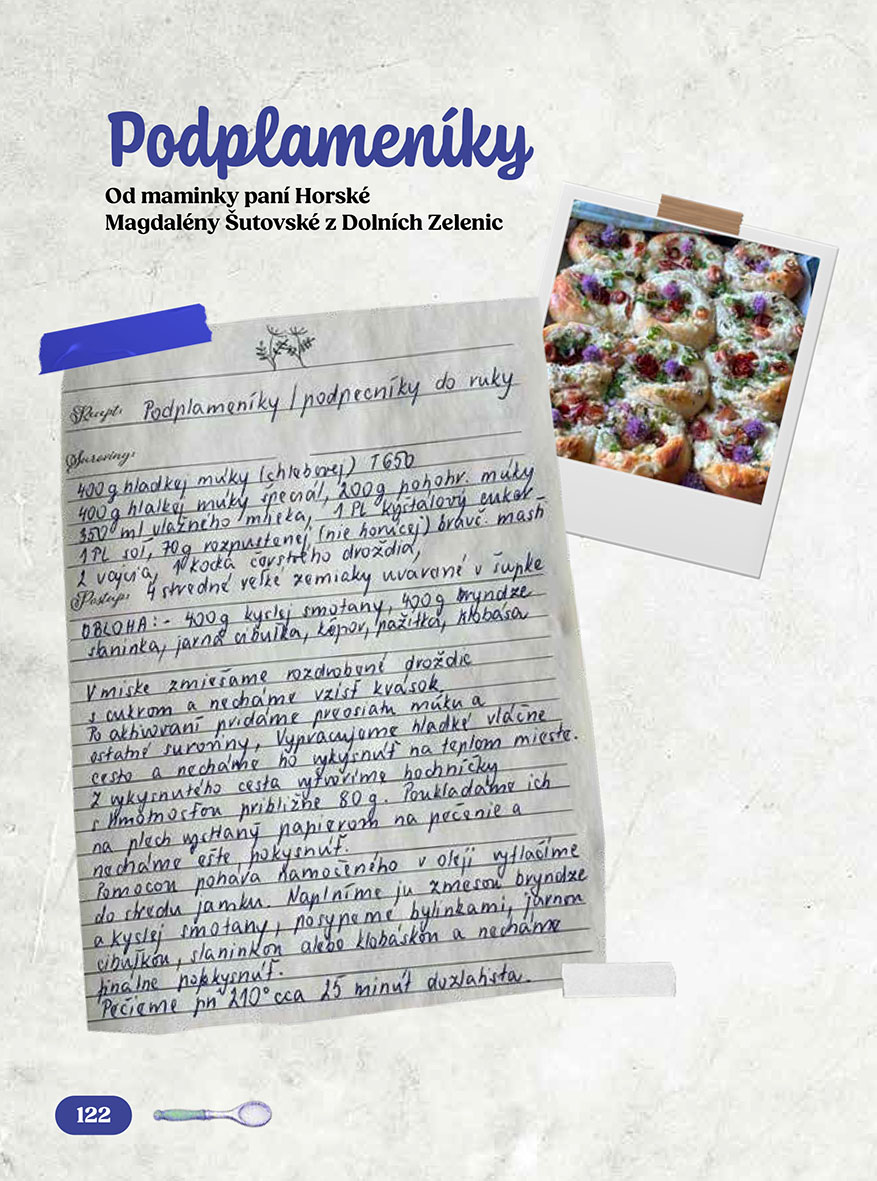 Podplameníky
Od maminky paní Horské
Magdalény Šutovské z Dolních Zelenic
Recept: Podplameníky / podpecníky do ruky
Suroviny:
400g hladkej múky (chlebovej) T650
400g hlalkej múky špeciál, 200g pohohr. múky
350 ml vlažného mlieka, 1 PL kryštálový cukor
1 PL soľ, 70g rozpustenej (nie horúcej) bravč. masti
2 vajcia, 1 kocka čerstvého droždia,
Postup: 4 stredné veľké zemiaky uvarené v šupke
OBLOHA: - 400g kyslej smotany, 400g bryndze
slaninka, jarná cibuľka, kôpor, pažítka, klobása
V miske zmiešame rozdrobené droždie
s cukrom a necháme vzísť kvások.
Po aktivovaní pridáme preosiatu múku a
ostatné suroviny, Vypracujeme hladké vláčne
cesto a necháme ho vykysnúť na teplom mieste.
Z vykysnutého cesta vytvoríme bochníčky
s hmotnosťou približne 80g. Poukladáme ich
na plech vystlaný papierom na pečenie a
necháme ešte pokysnúť.
Pomocou pohára namočeného v oleji vytlačíme
do stredu jamku. Naplníme ju zmesou bryndze
a kyslej smotany, posypeme bylinkami, jarnou
cibuľkou, slaninkou alebo klobáskou a necháme
finálne pokysnúť.
Pečieme pri 210° cca 25 minút dozlatista.
122